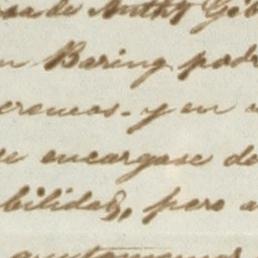 casa de Anthy Gib
n Baring pod
cremos. y en
e encargase de
bilidad, pero a